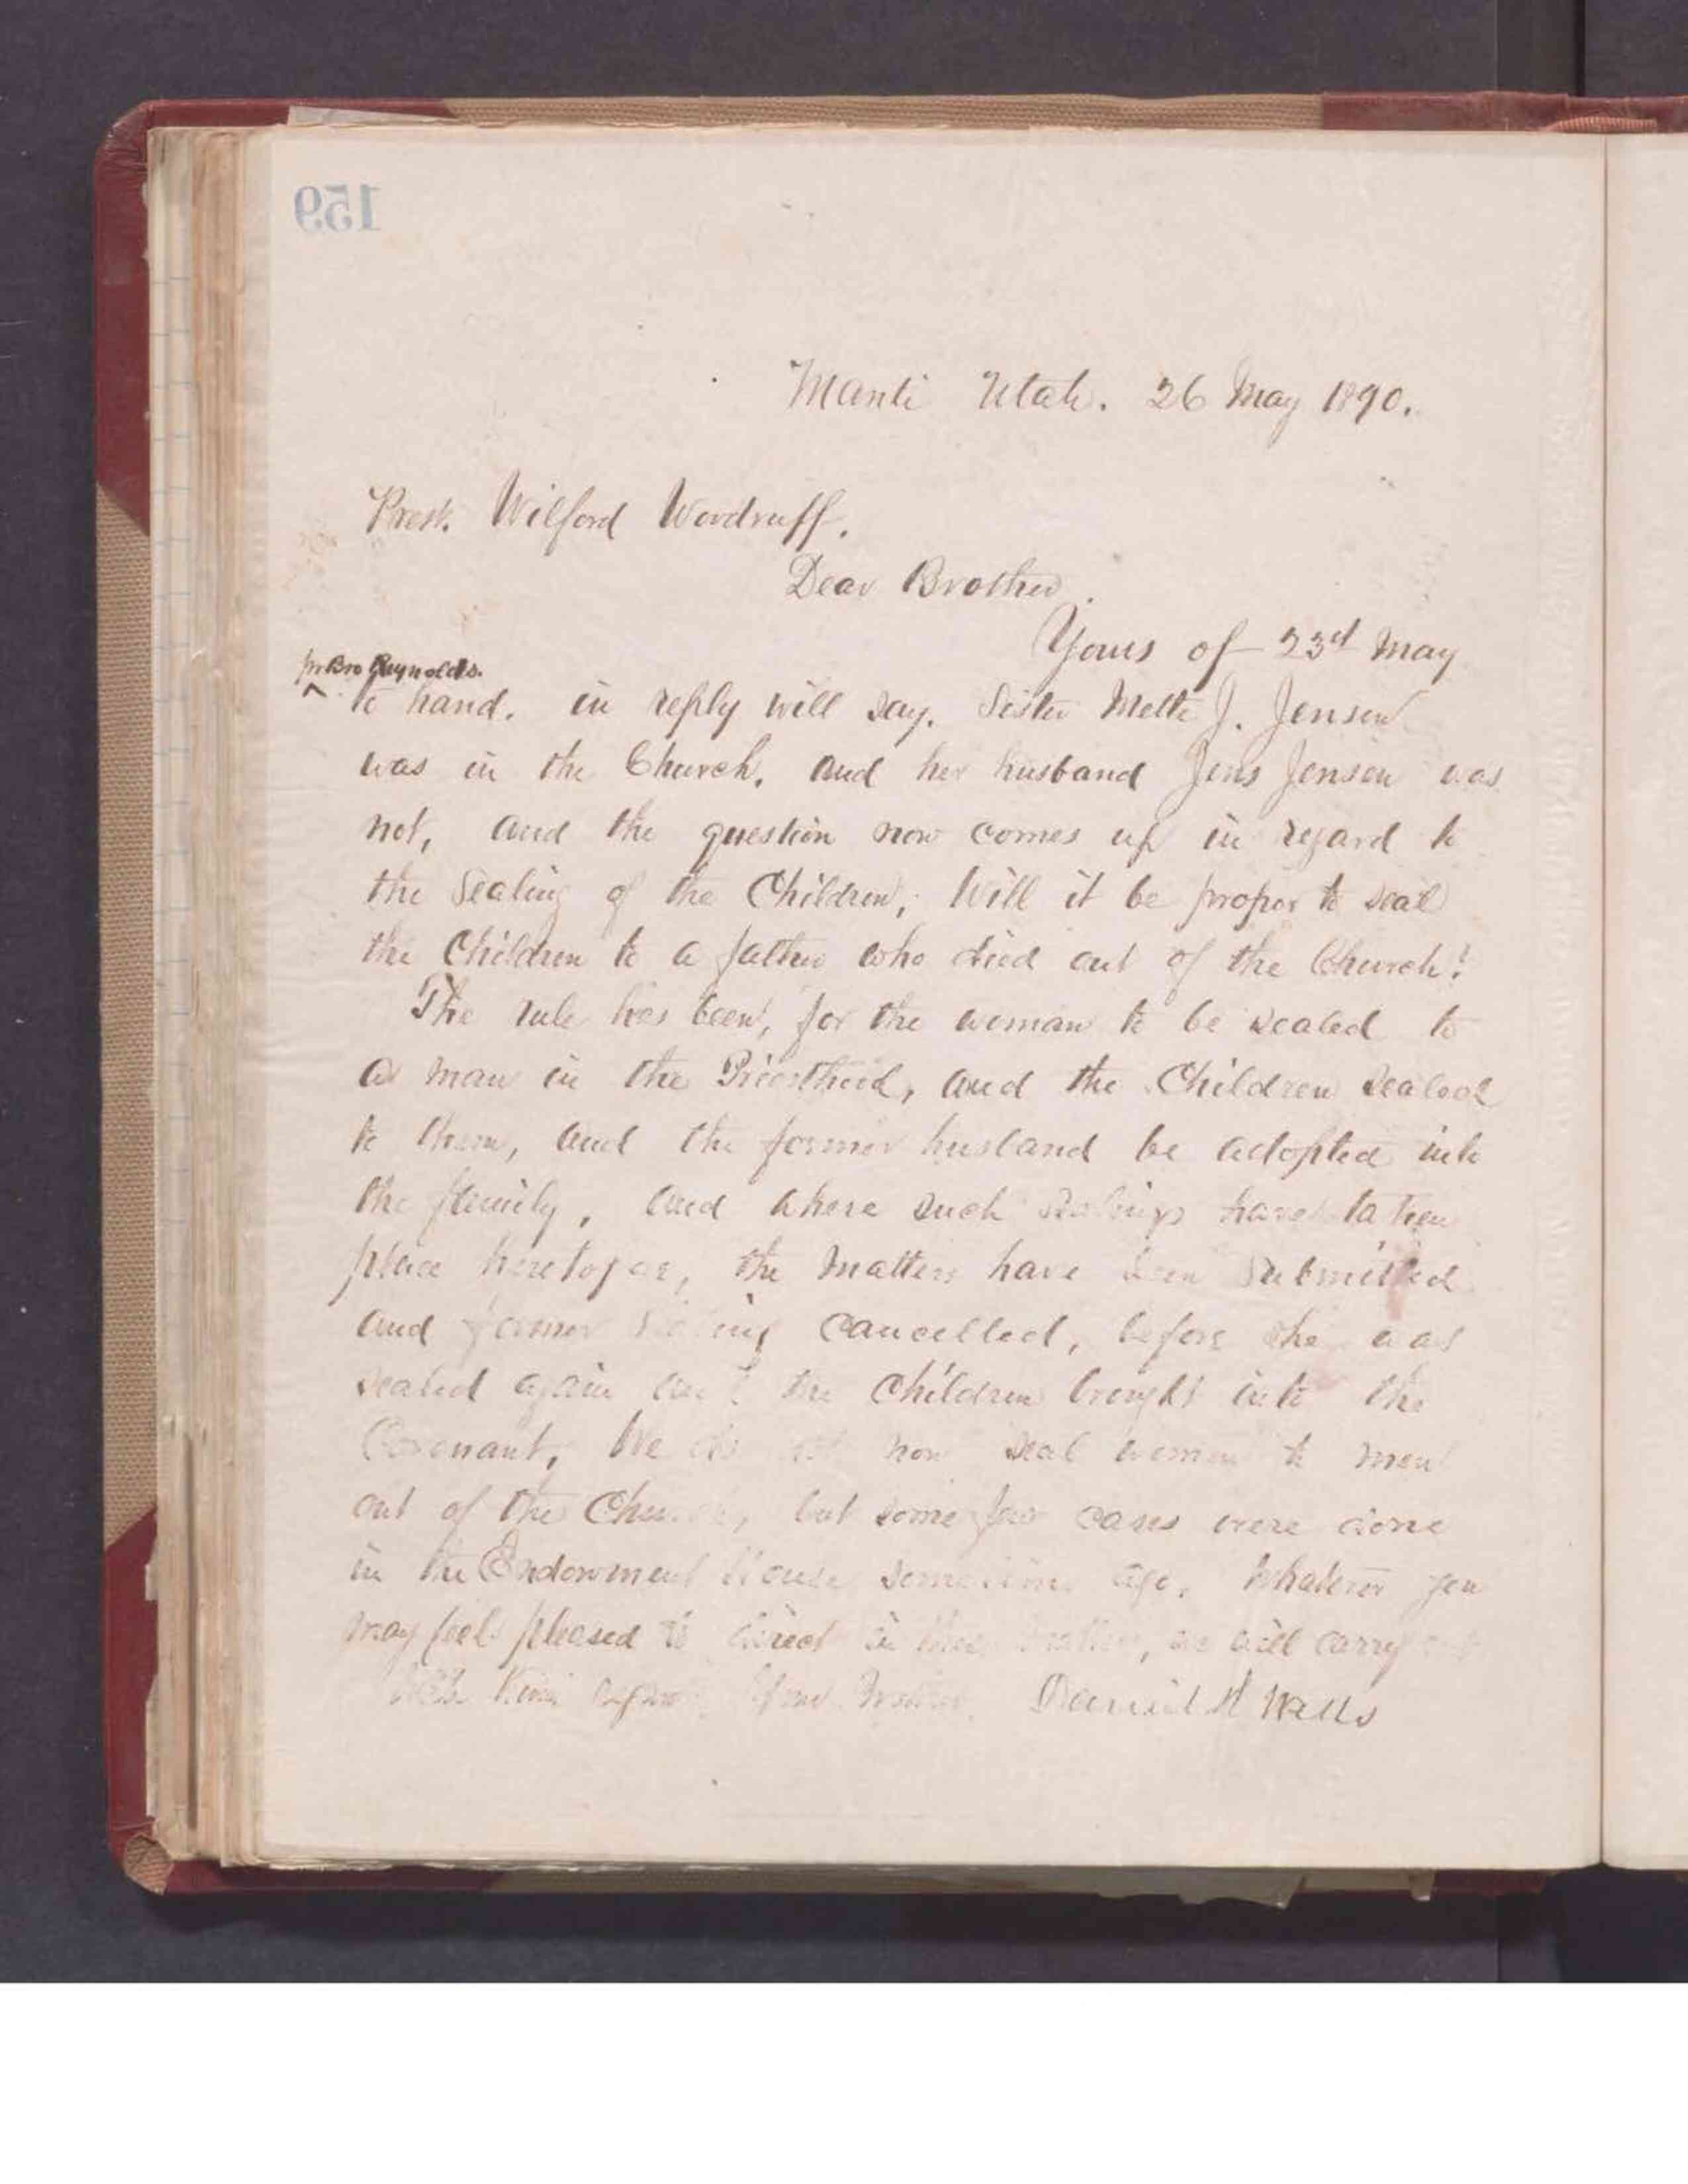 159
Manti Utah. 26 May 1890.
Prest. Wilford Woodruff.
Dear Brother.
Yours of 23d May
pr Bro Reynolds.
^ to hand. in reply will say. Sister Mette J. Jensen
was in the Church, and her husband Jens Jensen was
not, and the question now comes up in regard to
the Sealing of the Children, Will it be proper to seal
the Children to a father who died out of the Church?
The rule has been, for the woman to be sealed to
a man in the Priesthood, and the Children sealed
to them, and the former husband be adopted into
the family, and where such sealings have taken
place heretofore, the matters have been submitted
and former Sealing cancelled, before she was
sealed again and the Children brought into the
Covenant, We do not now seal women to men
out of the Church, but some few cases were done
in the Endowment House sometime ago. Whatever you
may feel pleased to direct in this matter, we will carry out
With Kind regards. Your Brother. Daniel H Wells